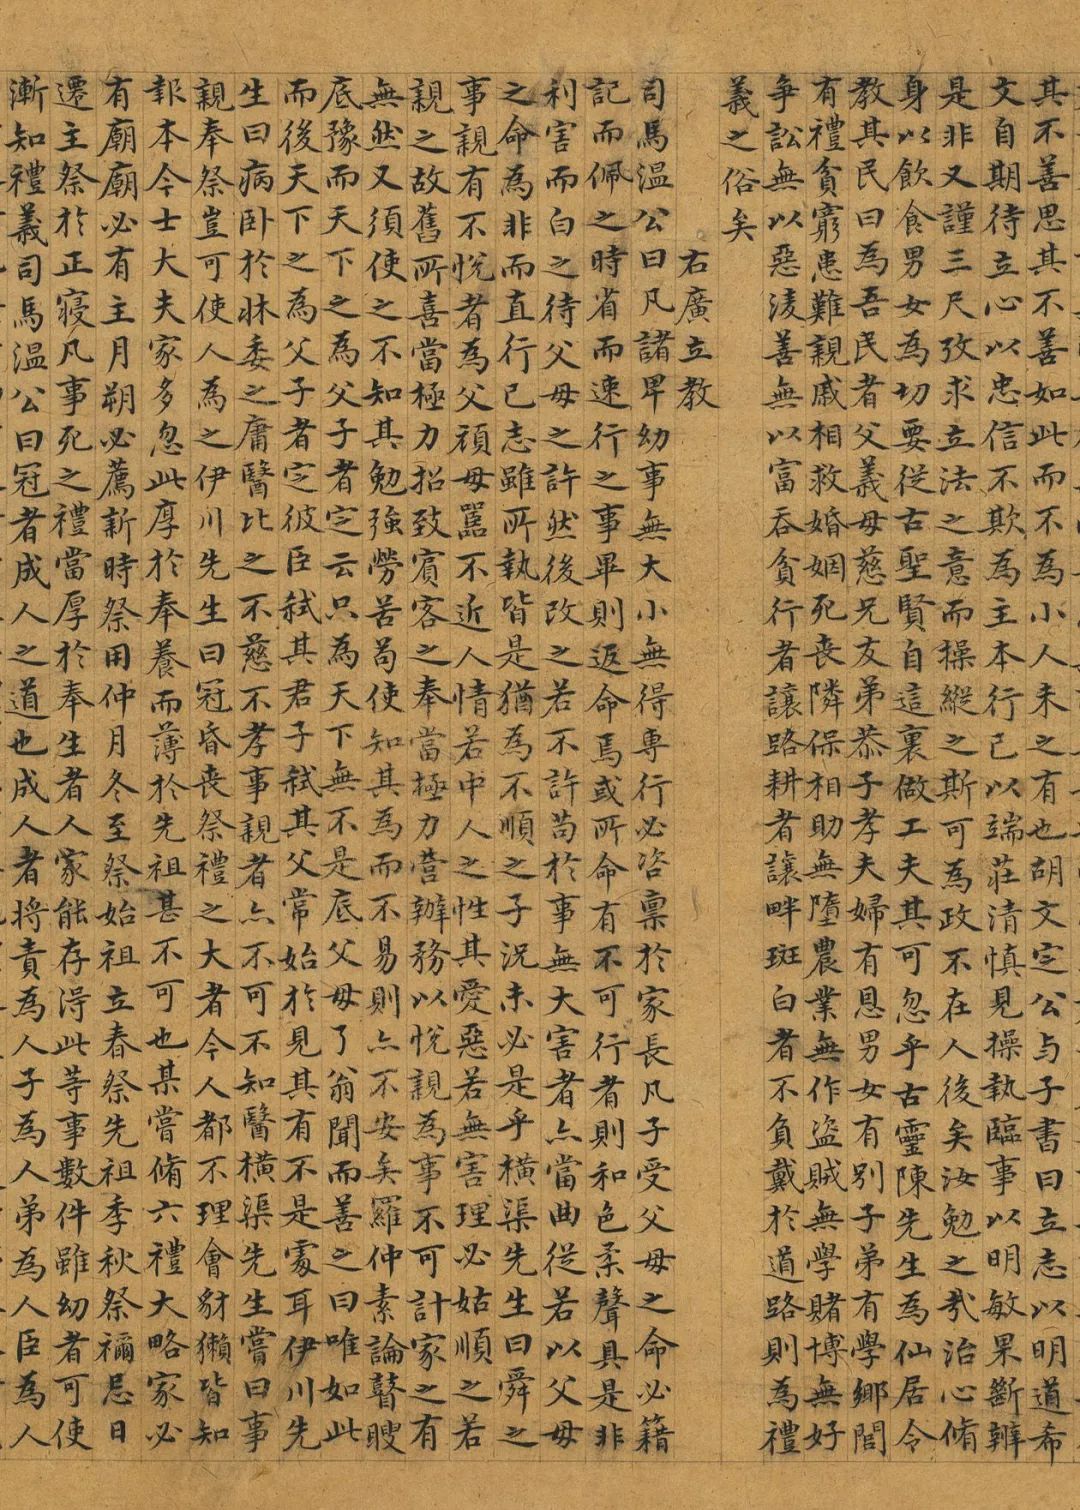 其不善思其不善如此而不為小人未之有也胡文定公与子書曰立志以明道希
文自期待立心以忠信不欺為主本行己以端莊清慎見操執臨事以明敏果斷辨
是非又謹三尺攷求立法之意而操縱之斯可為政不在人後矣汝勉之哉治心脩
身以飲食男女為切要從古聖賢自這裏做工夫其可忽乎古靈陳先生為仙居令
教其民曰為吾民者父義母慈兄友弟恭子孝夫婦有恩男女有別子弟有學鄉閭
有禮貧窮患難親戚相救婚姻死喪隣保相助無墮農業無作盜賊無學賭博無好
爭訟無以惡淩善無以富吞貧行者讓路耕者讓畔斑白者不負戴於道路則為禮
義之俗矣
右廣立教
司馬温公曰凡諸卑幼事無大小無得專行必咨稟於家長凡子受父母之命必籍
記而佩之時省而速行之事畢則返命焉或所命有不可行者則和色柔聲具是非
利害而白之待父母之許然後改之若不許苟於事無大害者亦當曲從若以父母
之命為非而直行己志雖所執皆是猶為不順之子況未必是乎橫渠先生曰舜之
事親有不悅者為父頑母嚚不近人情若中人之性其愛惡若無害理必姑順之若
親之故舊所喜當極力招致賓客之奉當極力營辦務以悅親為事不可計家之有
無然又須使之不知其勉強勞苦苟使知其為而不易則亦不安矣羅仲素論瞽瞍
底豫而天下之為父子者定云只為天下無不是底父母了翁聞而善之曰唯如此
而後天下之為父子者定彼臣弒其君子弒其父常始於見其有不是處耳伊川先
生曰病卧於牀委之庸醫比之不慈不孝事親者亦不可不知醫橫渠先生嘗曰事
親奉祭豈可使人為之伊川先生曰冠昏喪祭禮之大者今人都不理會豺獺皆知
報本今士大夫家多忽此厚於奉養而薄於先祖甚不可也某嘗脩六禮大略家必
有廟廟必有主月朔必薦新時祭用仲月冬至祭始祖立春祭先祖季秋祭禰忌日
遷主祭於正寢凡事死之禮當厚於奉生者人家能存得此等事數件雖幼者可使
漸知禮義司馬温公曰冠者成人之道也成人者將責為人子為人弟為人臣為人